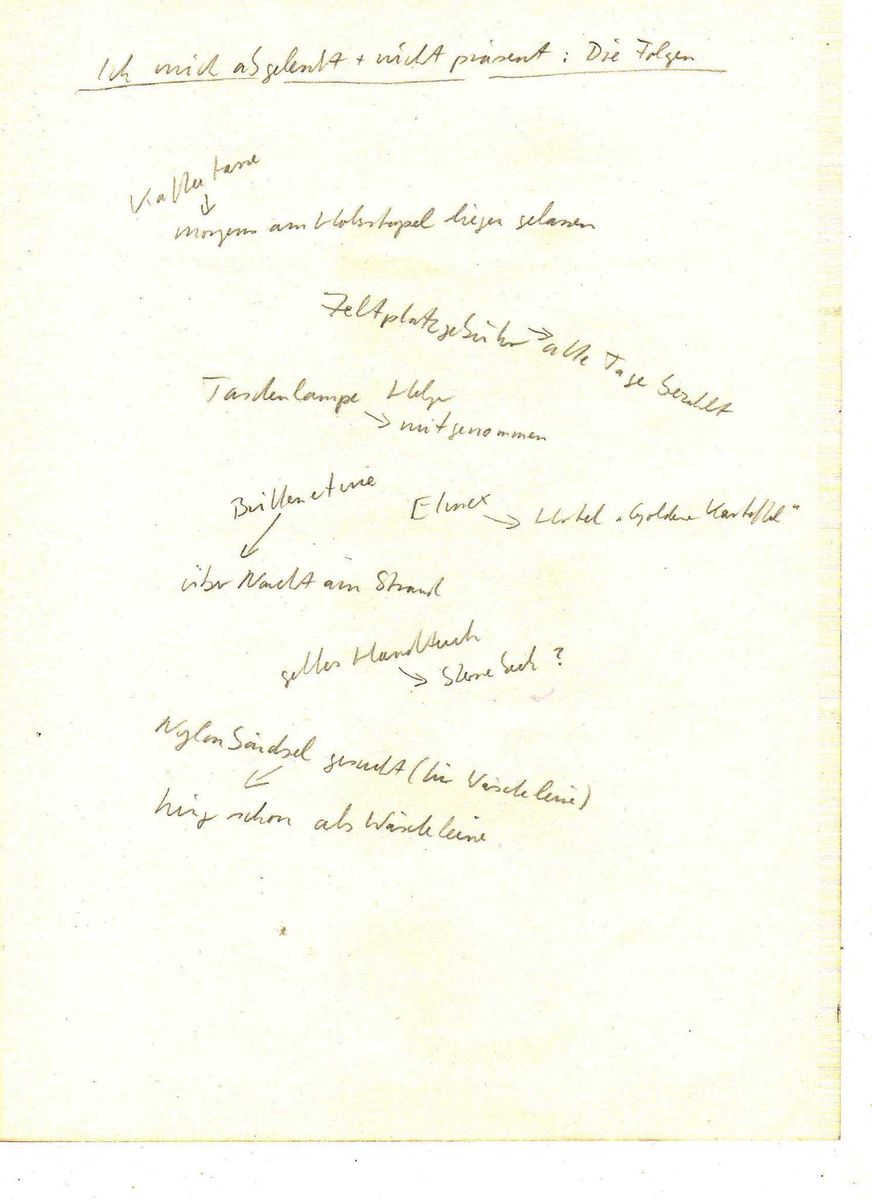 Ich mich abgelenkt + nicht präsent : Die Folgen
Kaffeetasse
↓
morgens am Holzstapel liegen gelassen
Zeltplatzgebühr → alle Tage bezahlt
Taschenlampe Helga
→ mitgenommen
Brillenetuie
Elmex → Hotel „Goldene Kartoffel"
über Nacht am Strand
gelbes Handtuch
→ ?
Nylonbändsel gesucht (für Wäscheleine)
hing schon als Wäscheleine